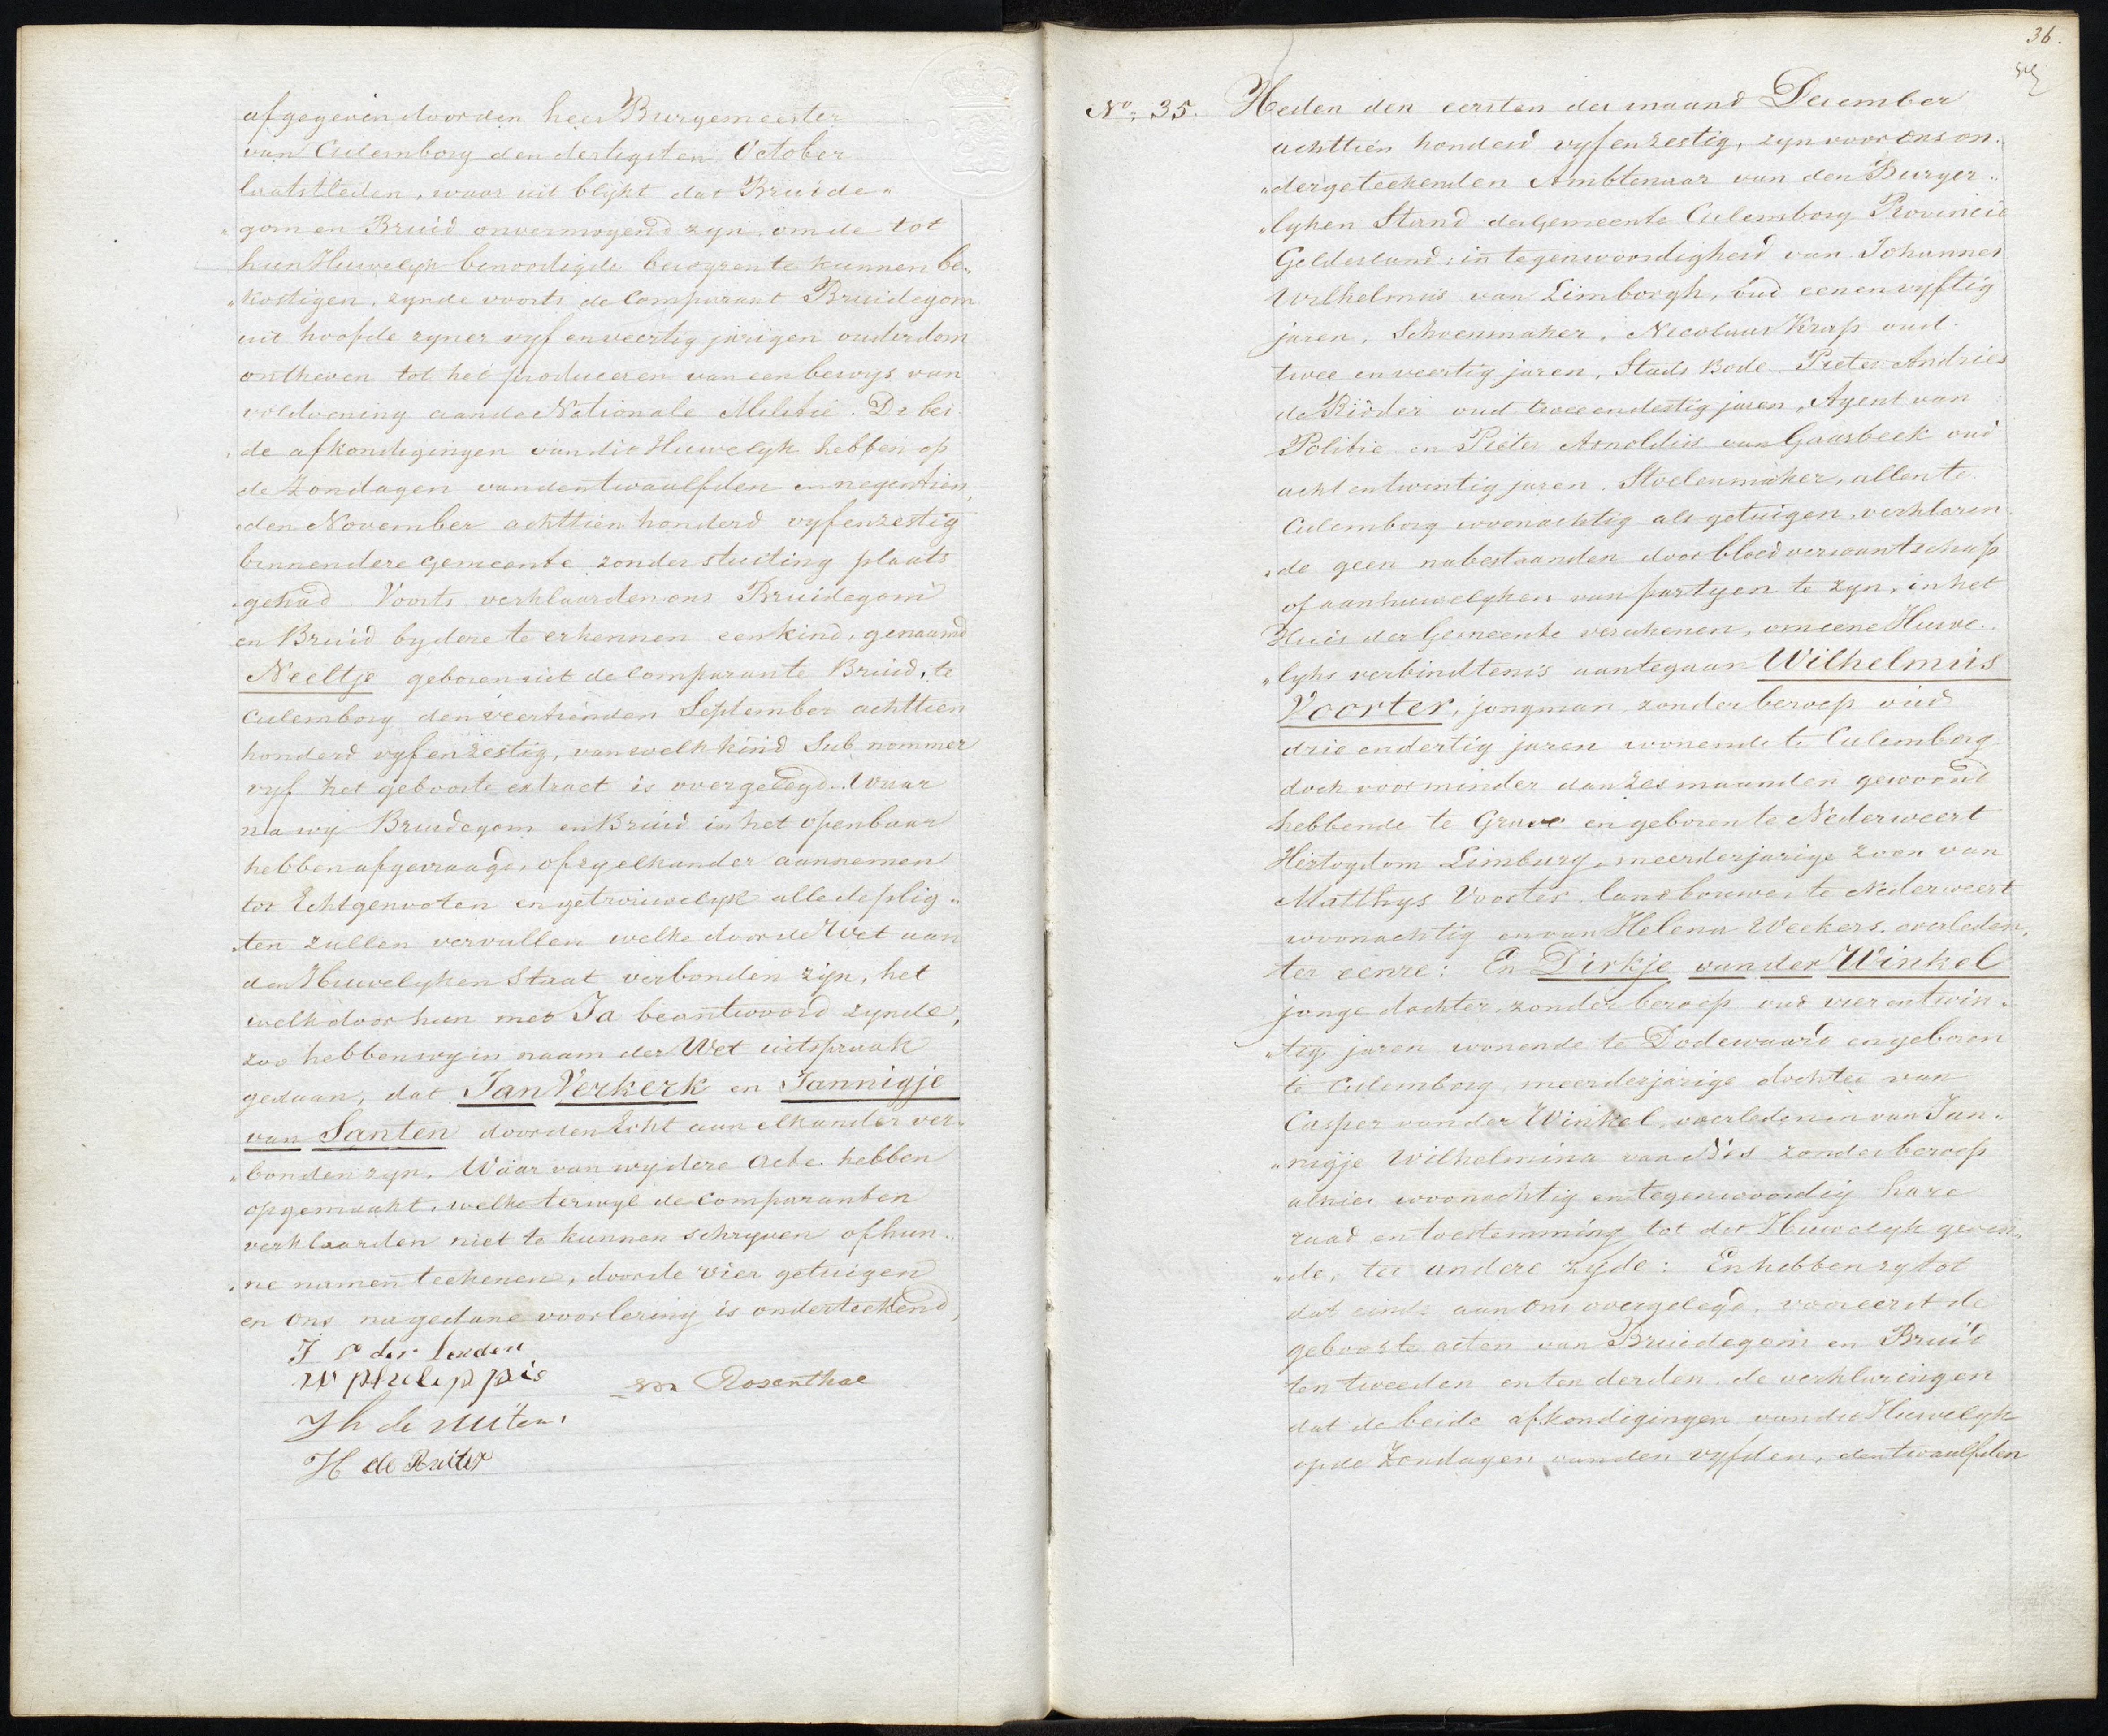 afgegeven door den heer Burgemeester
van Culemborg den dertigsten October
laatstleden, waar uit blijkt dat Bruide„
„gom en Bruid onvermogend zyn om de tot
hun Huwelyk benoodigde bewyzen te kunnen be„
„kostigen, zynde voorts de Comparant Bruidegom
uit hoofde zyner vyf en veertig jarigen ouderdom
ontheven tot het produceren van een bewys van
voldoening aan de Nationale Militie. De bei„
„de afkondigingen van dit Huwelyk hebben op
de Zondagen van den twaalfden en negentien„
„den November achttien honderd vyf en zestig
binnen deze gemeente zonder stuiting plaats
gehad. Voorts verklaarden ons Bruidegom
en Bruid by deze te erkennen een kind, genaamd
Neeltje geboren uit de Comparante Bruid, te
Culemborg den veertienden September achttien
honderd vyf en zestig, van welk kind Sub nommer
vyf het geboorte extract is overgelegd. Waar
na wij Bruidegom en Bruid in het openbaar
hebben afgevraagd, of zy elkander aannemen
tot Echtgenooten en getrouwelyk alle de plig„
„ten zullen vervullen welke door de Wet aan
den Huwelyken Staat verbonden zijn, het
welk door hun met Ja beantwoord zynde,
zoo hebben wy in naam der Wet uitspraak
gedaan, dat Jan Verkerk en Jannigje
van Santen door den Echt aan elkander ver„
„bonden zyn. Waar van wy deze Acte hebben
opgemaakt, welke terwyl de Comparanten
verklaarden niet te kunnen schryven of hun„
„ne namen teekenen, door de vier getuigen
en Ons na gedane voorlezing is onderteekend,
J v der Leeden
W Philippis
Rosenthal
H de Ruiter
36.
No. 35. Heden den eersten der maand December
achttien honderd vyf en zestig, zyn voor Ons on„
„dergeteekenden Ambtenaar van den Burger„
„lyken Stand der Gemeente Culemborg Provincie
Gelderland: in tegenwoordigheid van Johannes
Wilhelmus van Limborgh, oud een en vyftig
jaren, Schoenmaker, Nicolaas Krap oud
twee en veertig jaren, Stads Bode Pieter Andries
de Ridder oud twee en dertig jaren, Agent van
Politie en Pieter Arnoldus van Gaasbeek oud
acht en twintig jaren, Stoelenmaker, allen te
Culemborg woonachtig als getuigen, verklaren„
„de geen nabestaanden door bloedverwantschap
of aanhuwelyken van partyen te zyn, in het
Huis der Gemeente verschenen, om eene Huwe„
„lyks verbindtenis aantegaan Wilhelmus
Voorter, jongman, zonder beroep oud
drie en dertig jaren wonende te Culemborg
doch voor minder dan zes maanden gewoond
hebbende te Grave en geboren te Nederweert
Hertogdom Limburg, meerderjarige zoon van
Matthys Voorter, landbouwer te Nederweert
woonachtig en van Helena Weekers, overleden,
ter eenre: En Dirkje van der Winkel
jonge dochter, zonder beroep oud vier en twin„
„tig jaren wonende te Dodewaard en geboren
te Culemborg meerderjarige dochter van
Casper van der Winkel, overleden en van Jan„
„nigje Wilhelmina van Nis zonder beroep
alhier woonachtig en tegenwoordig hare
raad en toestemming tot dit Huwelyk geven„
„de, ter andere zyde: En hebben zy tot
dat einde aan Ons overgelegd, vooreerst de
geboorte acten van Bruidegom en Bruid
ten tweeden en ten derden, de verklaringen
dat de beide afkondigingen van dit Huwelyk
op de Zondagen van den vyfden, den twaalfden